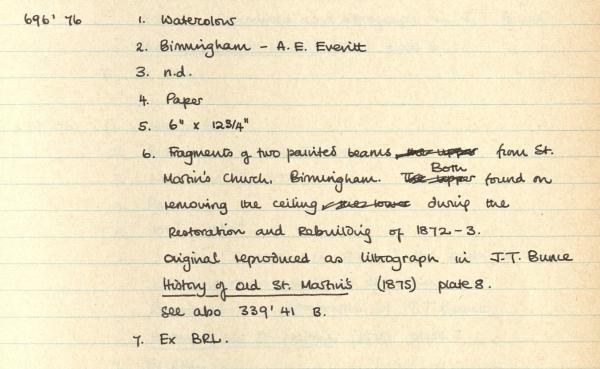 696' 76 1. Watercolour
2. Birmingham - A. E. Everitt
3. n.d.
4. Paper
5. 6" x 12 3/4"
6. Fragments of two painted beams the upper from St.
Martin's Church, Birmingham. The upper Both found on
removing the ceiling the lower during the
Restoration and Rebuilding of 1872-3.
Original reproduced as lithograph in J.T. Bunce
History of Old St. Martin's (1875) plate 8.
See also 339' 41 B.
7. Ex BRL.